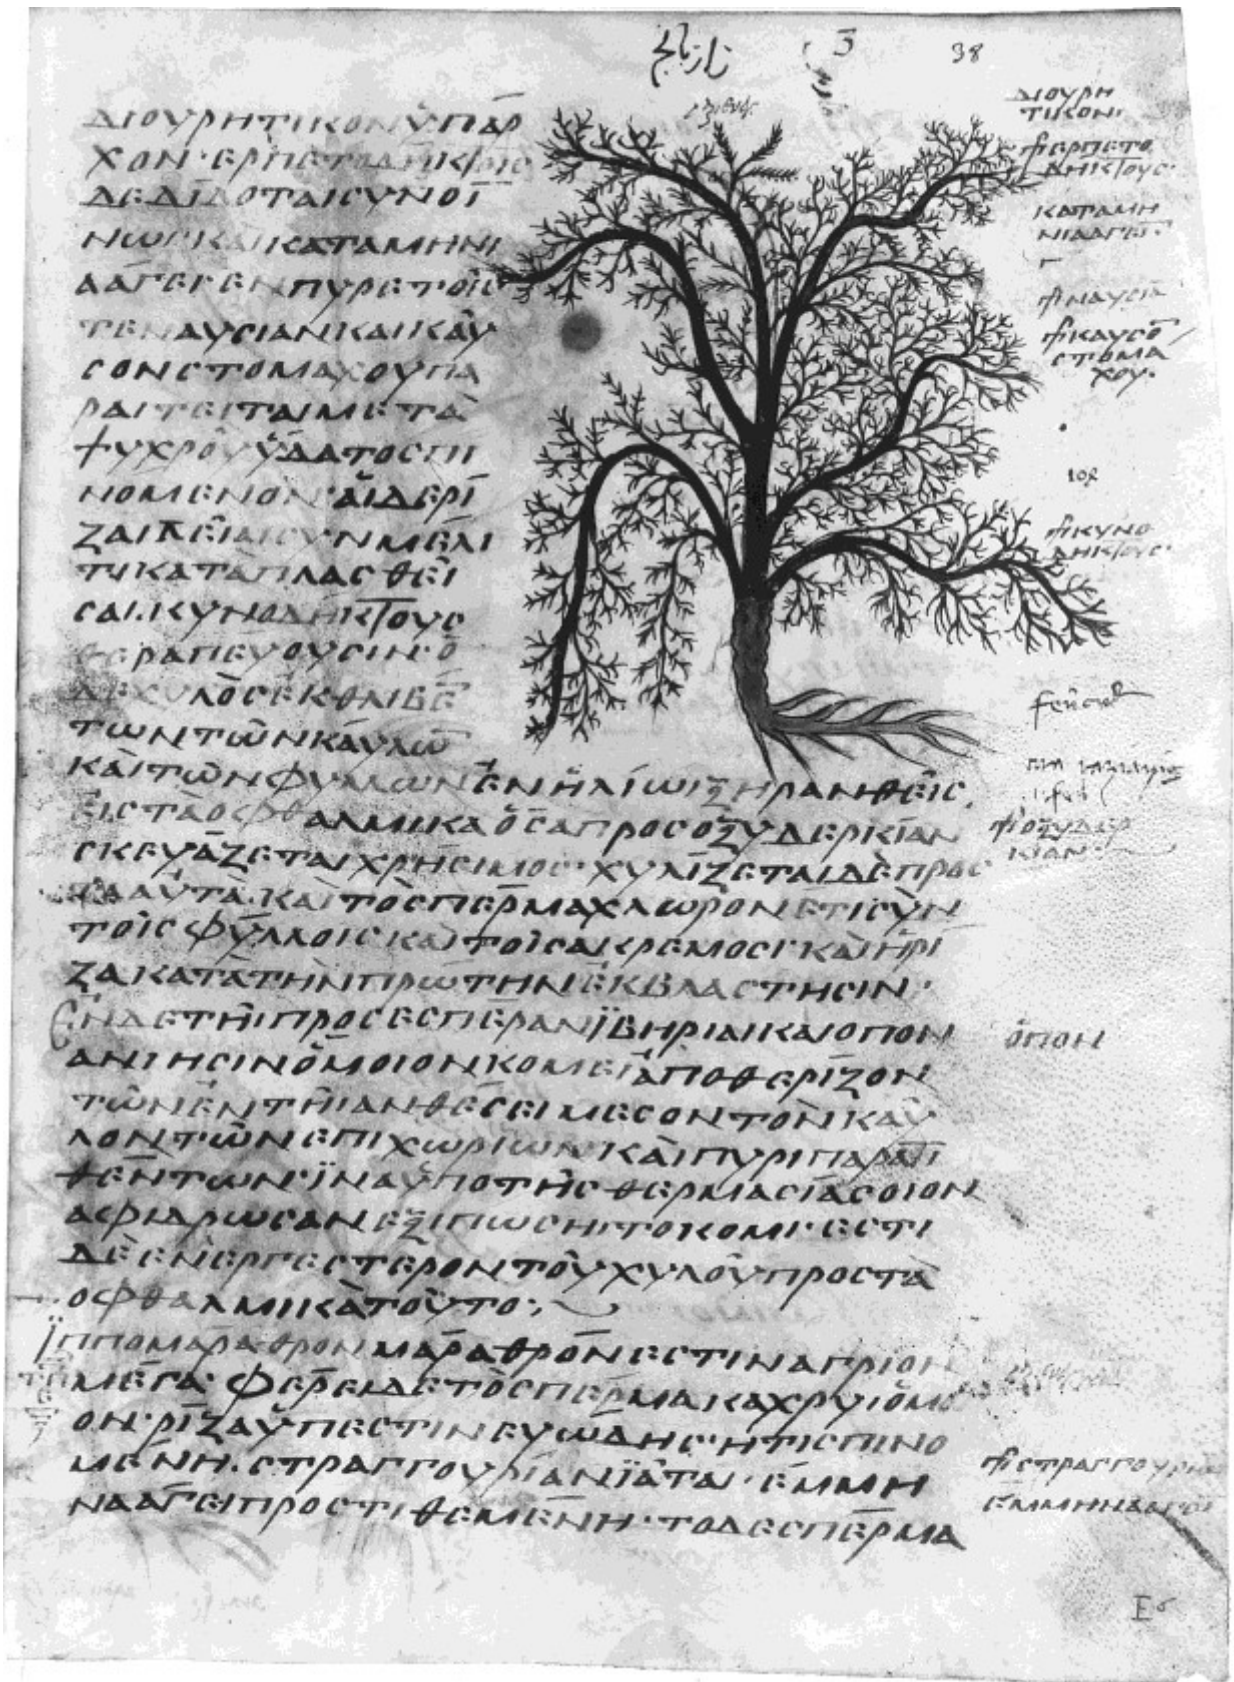 38
ΔΙΟΥΡΗΤΙΚΟΝ ΫΠΑΡ
ΧΟΝ · ΕΡΠΕΤΟΔΗΚΤΟΙΣ
ΔΕ ΔΙΔΟΤΑΙ CΥΝ ΟΙ
ΝΩΙ · ΚΑΙ ΚΑΤΑΜΗΝΙ
Α ΑΓΕΙ ΕΝ ΠΥΡΕΤΟΙC
ΤΕ ΝΑΥCΙΑΝ ΚΑΙ ΚΑΥ
CΟΝ CΤΟΜΑΧΟΥ ΠΑ
ΡΑΙΤΕΙΤΑΙ ΜΕΤᾺ
ΨΥΧΡΟΥ ΫΔΑΤΟC ΠΙ
ΝΟΜΕΝΟΝ · ΑΙ ΔΕ ΡΙ
ΖΑΙ ΛΕΙΑΙ CΥΝ ΜΕΛΙ
ΤΙ ΚΑΤΑΠΛΑCΘΕΙ
CΑΙ · ΚΥΝΟΔΗΚΤΟΥC
ΘΕΡΑΠΕΥΟΥCΙΝ · Ο
ΔΕ ΧΥΛΟC ΕΚΘΛΙΒΕ
ΤΩΝ ΤΩΝ ΚΑΥΛΩ
ΚΑΙ ΤΩΝ ΦΥΛΛΩΝ ΕΝ ΗΛΙΩΙ ΞΗΡΑΝΘΕΙC
ΕΙC ΤᾺ ΟΦΘΑΛΜΙΚΑ ΟCΑ ΠΡΟC ΟΞΥΔΕΡΚΙΑΝ
CΚΕΥΑΖΕΤΑΙ ΧΡΗCΙΜΟC · ΧΥΛΙΖΕΤΑΙ ΔΕ ΠΡΟC
ΑΥΤᾺ · ΚΑΙ ΤΟ CΠΕΡΜΑ ΧΛΩΡΟΝ ΕΤΙ CΥΝ
ΤΟΙC ΦΥΛΛΟΙC ΚΑΙ ΤΟΙC ΑΚΡΕΜΟCΙ · ΚΑΙ Η ΡΙ
ΖΑ ΚΑΤΑ ΤΗΝ ΠΡΩΤΗΝ ΕΚΒΛΑCΤΗCΙΝ ·
ΕΝ ΔΕ ΤΗΙ ΠΡΟC ΕCΠΕΡΑΝ ΪΒΗΡΙΑΙ ΚΑΙ ΟΠΟΝ
ΑΝΙΗCΙΝ ΟΜΟΙΟΝ ΚΟΜΕΙ ΑΠΟΘΕΡΙΖΟΝ
ΤΩΝ ΕΝ ΤΗΙ ΑΝΘΕCΕΙ ΜΕCΟΝ ΤΟΝ ΚΑΥ
ΛΟΝ ΤΩΝ ΕΠΙΧΩΡΙΩΝ ΚΑΙ ΠΥΡΙ ΠΑΡΑΤΙ
ΘΕΝΤΩΝ · ΪΝΑ ΫΠΟ ΤΗC ΘΕΡΜΑCΙΑC ΟΙΟΝ
ΑΦΙΔΡΩCΑΝ ΕΞΙΠΩCΗΙ ΤΟ ΚΟΜΙ · ΕCΤΙ
ΔΕ ΕΝΕΡΓΕCΤΕΡΟΝ ΤΟΥ ΧΥΛΟΥ ΠΡΟC ΤᾺ
ΟΦΘΑΛΜΙΚᾺ ΤΟΥΤΟ ·
ΪΠΠΟΜΑΡΑΘΡΟΝ ΜΑΡΑΘΡΟΝ ΕCΤΙΝ ΑΓΡΙΟΝ
ΜΕΓΑ · ΦΕΡΕΙ ΔΕ ΤΟ CΠΕΡΜΑ ΚΑΧΡΥΙ ΟΜΟΙ
ΟΝ · ΡΙΖΑ ΫΠΕCΤΙΝ ΕΥΩΔΗC · ΗΤΙC ΠΙΝΟ
ΜΕΝΗ · CΤΡΑΓΓΟΥΡΙΑΝ ΪΑΤΑΙ · ΕΜΜΗ
ΝΑ ΑΓΕΙ ΠΡΟCΤΙΘΕΜΕΝΗ · ΤΟ ΔΕ CΠΕΡΜΑ
ΔΙΟΥΡΗ
ΤΙΚΟΝ
ΕΡΠΕΤΟ
ΔΗΚΤΟΥC ·
ΚΑΤΑΜΗ
ΝΙΑ ΑΓΕΙ
ΝΑΥCΙΑ
ΚΑΥCΟ
CΤΟΜΑ
ΧΟΥ ·
ΚΥΝΟ
ΔΗΚΤΟΥC ·
ΟΞΥΔΕΡ
ΚΙΑΝ ·
ΟΠΟΝ
CΤΡΑΓΓΟΥΡΙΑ
ΕΜΜΗΝΑ ΑΓΕΙ